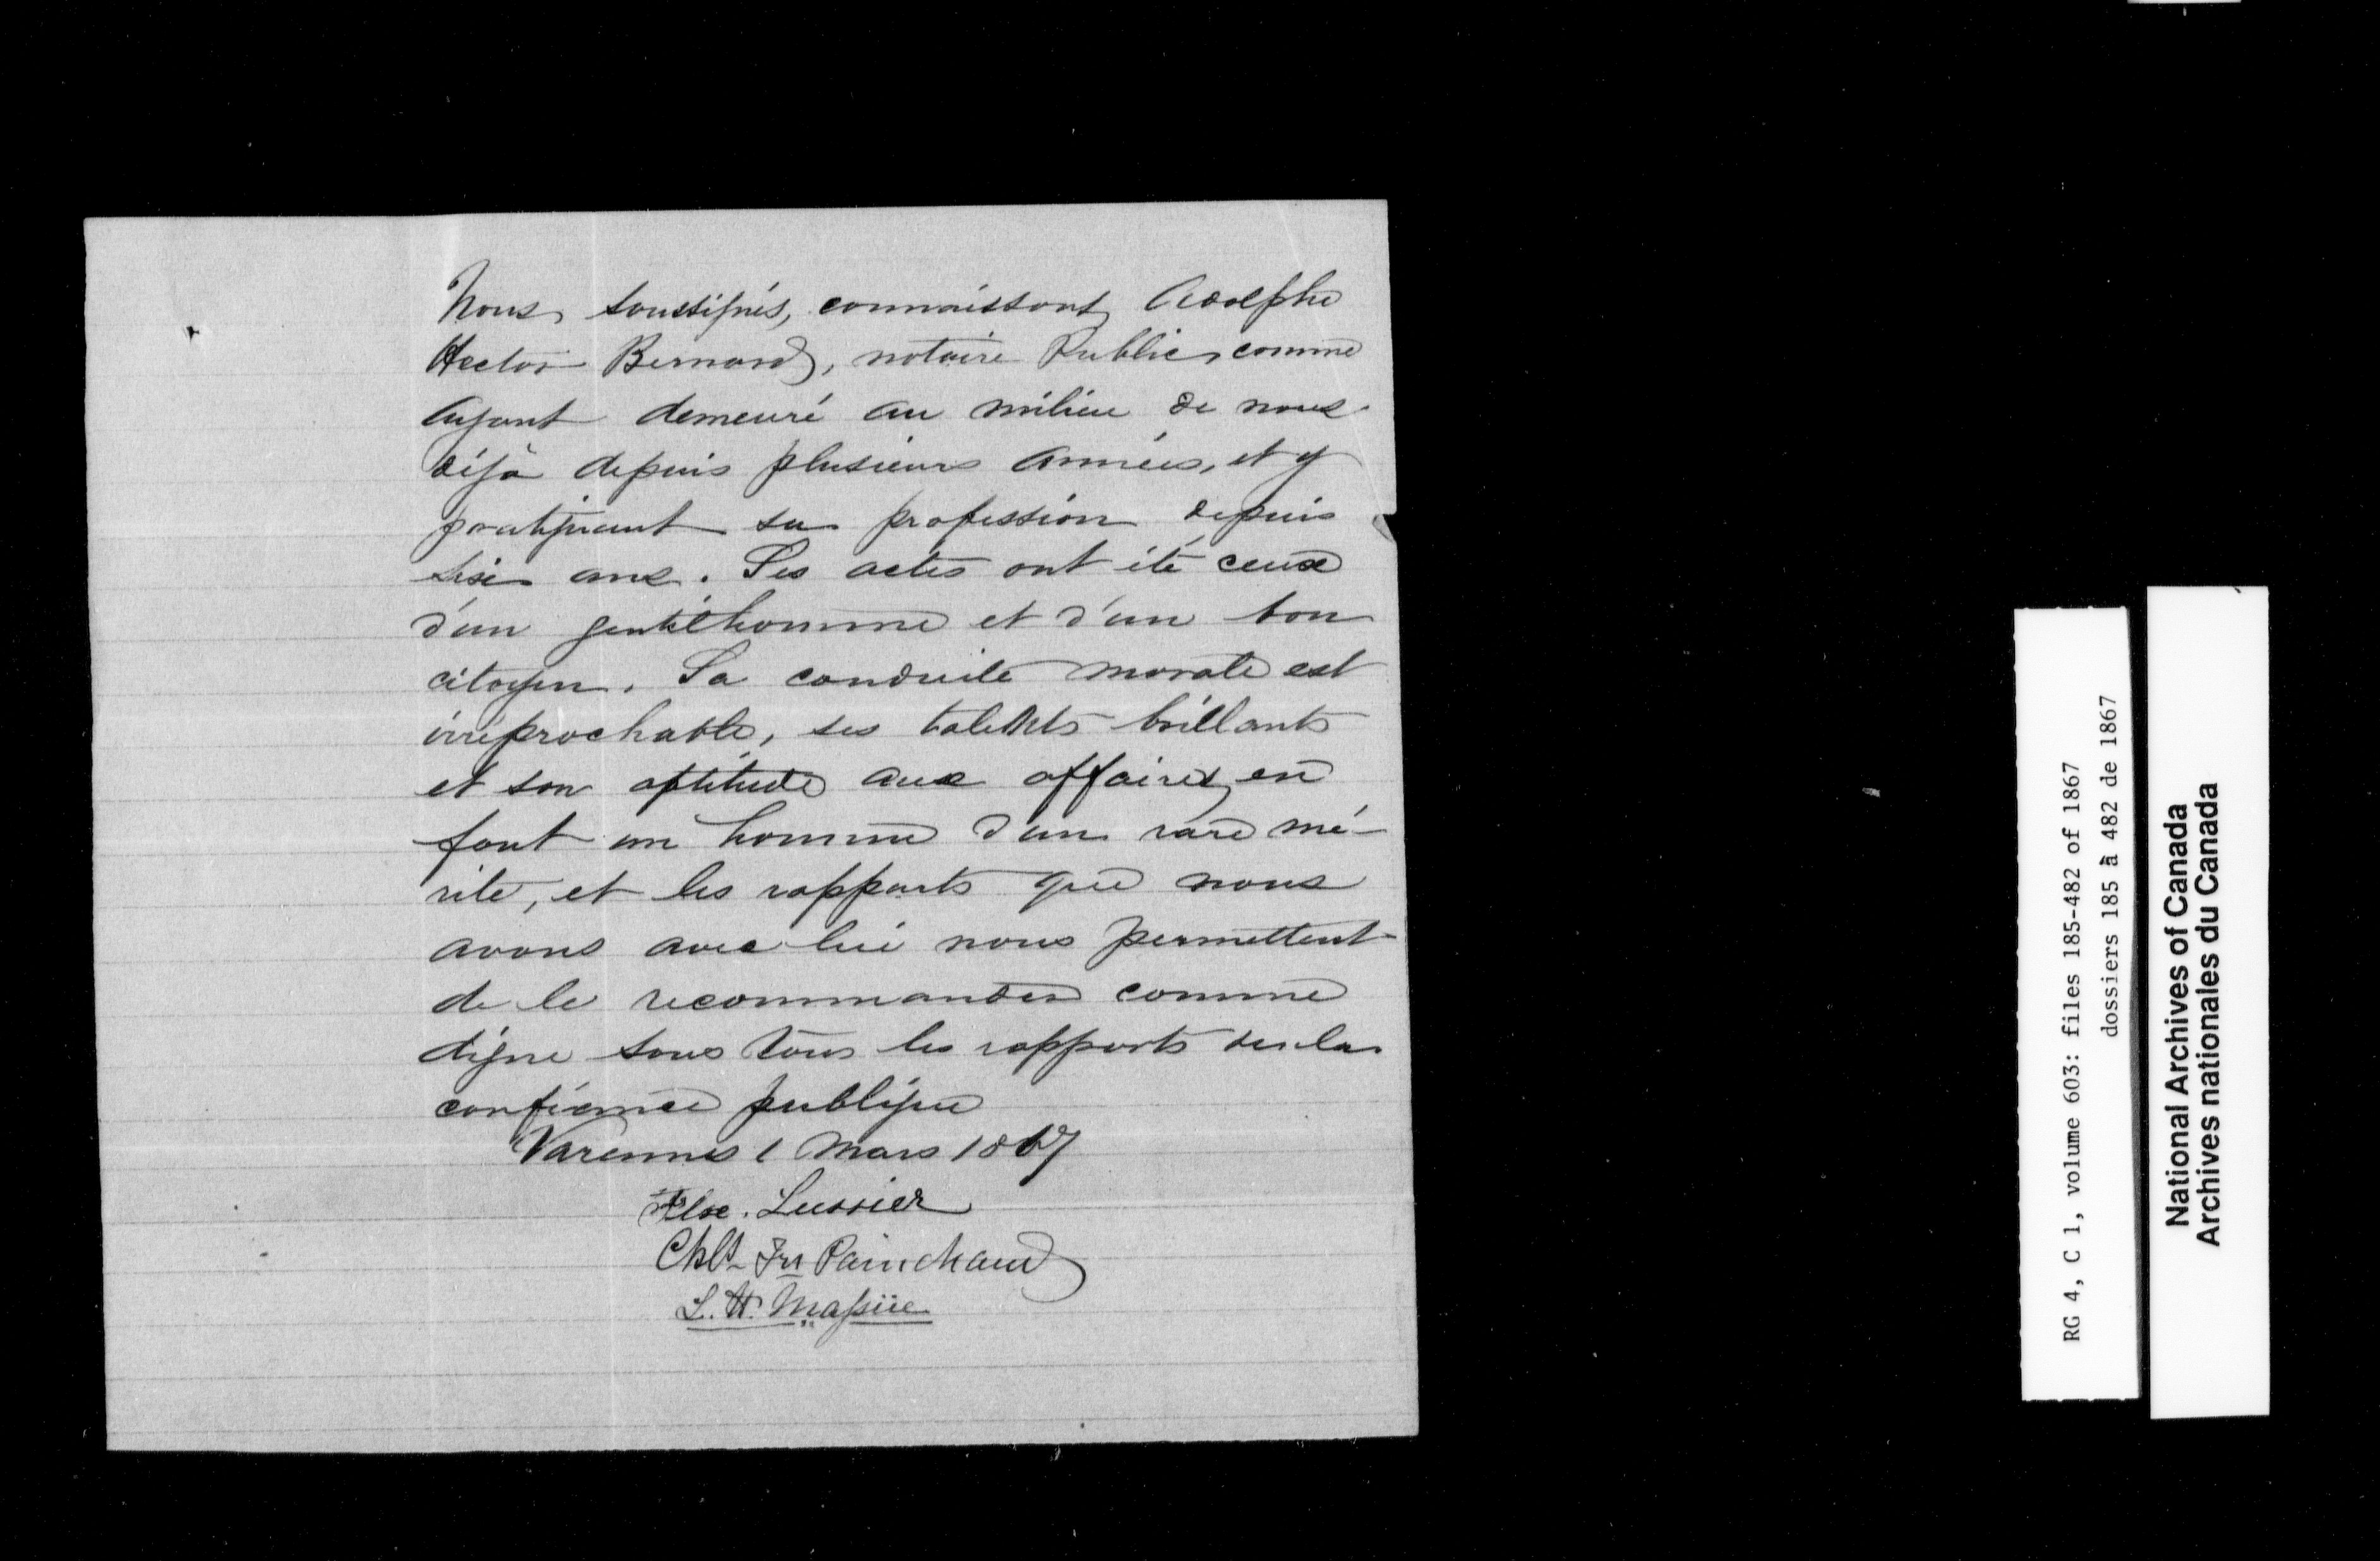 Nous soussignés, connaissons Adolphe
Hector Bernard, notaire Public comme
ayant demeuré au milieu de nous
déjà depuis plusieurs années, et y
pratiquant sa profession depuis
six ans. Ses actes ont été ceux
d'un gentilhomme et d'un bon
citoyen. Sa conduite morale est
irréprochable, ses talents brillants
et son aptitude aux affaires en
font un homme d'un rare mé-
rite, et les rapports que nous
avons avec lui nous permettent
de le recommander comme
digne sous tous les rapports de la
confiance publique
Varennes 1 Mars 1867
Lussier
Painchaud
L. H. Massüe
RG 4, C 1, volume 603: files 185-482 of 1867
dossiers 185 à 482 de 1867
National Archives of Canada
Archives nationales du Canada